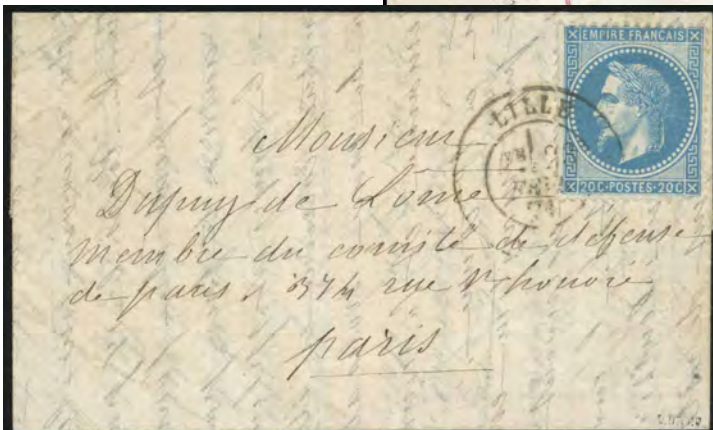 EMPIRE FRANÇAIS
20C·POSTES·20C
LILLE
FEVR
71
Monsieur
Dupuy de Lôme
membre du comité de défense
de paris, 374 rue St honoré
paris